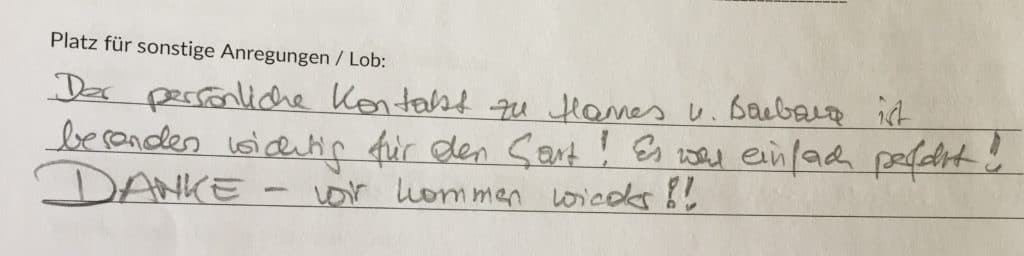 Platz für sonstige Anregungen / Lob:
Der persönliche Kontakt zu Hannes u. Barbara ist
besonders wichtig für den Gast! Es war einfach perfekt!
DANKE – wir kommen wieder!!